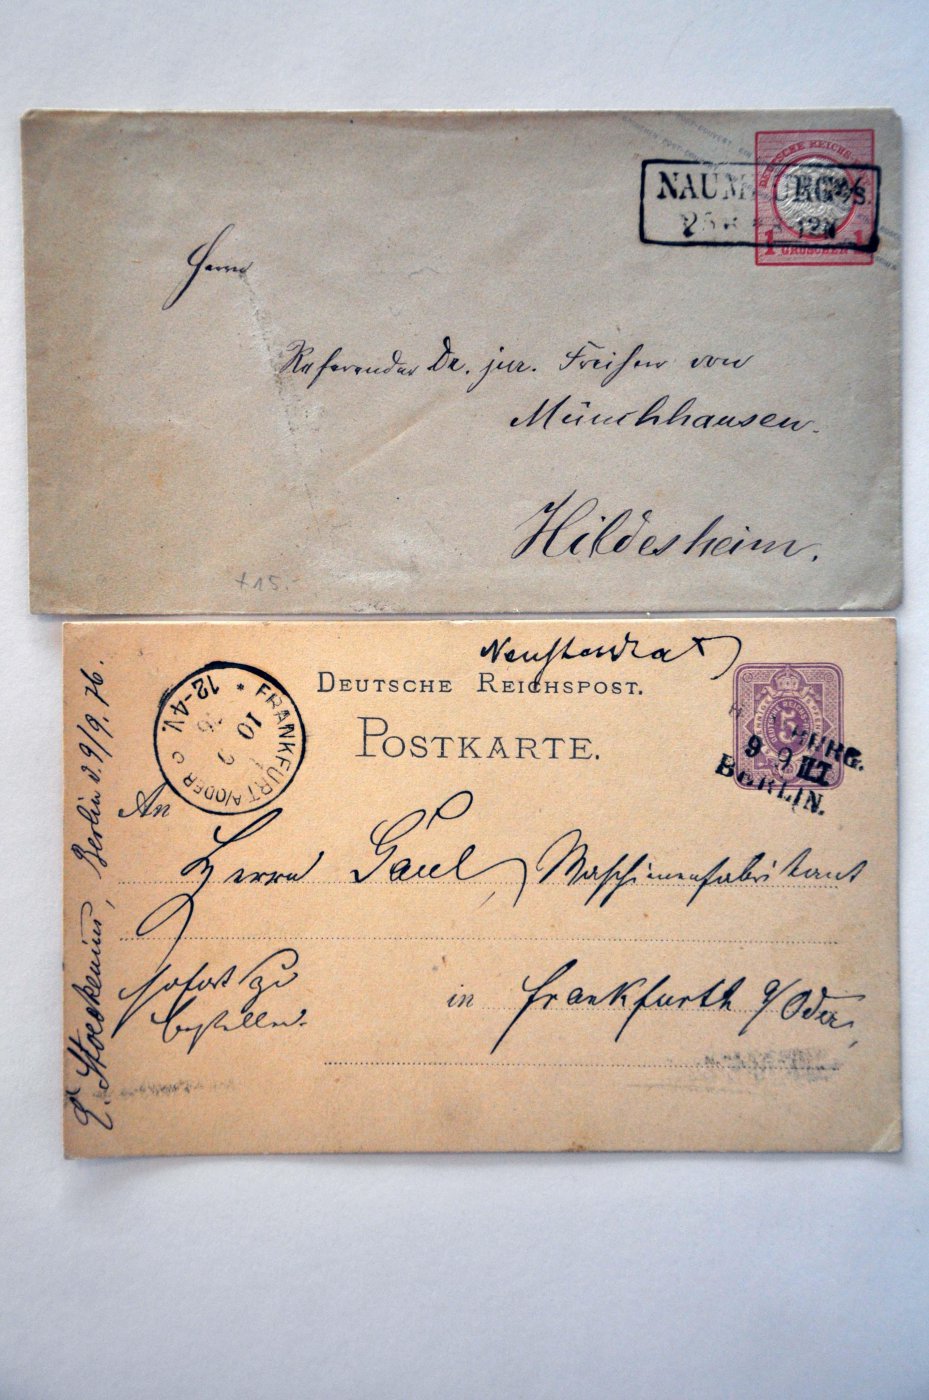 NAUMBURG a/S.
12N
DEUTSCHE REICHS-POST
1 GROSCHEN 1
Herrn
Referendar Dr. jur. Freiherr von
Münchhausen.
Hildesheim.
+15.-
DEUTSCHE REICHSPOST.
POSTKARTE.
FRANKFURT A/ODER
10 9
12-4V.
5
9 9 III
BERLIN.
An
Herrn Gaul, Maschinenfabrikant
sofort zu
bestellen.
in Frankfurth a/Oder,
Berlin d. 9/9. 76.